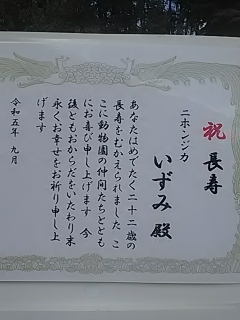 祝 長寿
ニホンジカ
いずみ 殿
あなたはめでたく二十二歳の
長寿をむかえられました こ
こに動物園の仲間たちととも
にお喜び申し上げます 今
後ともおからだをいたわり末
永くお幸せをお祈り申し上
げます
令和五年 九月